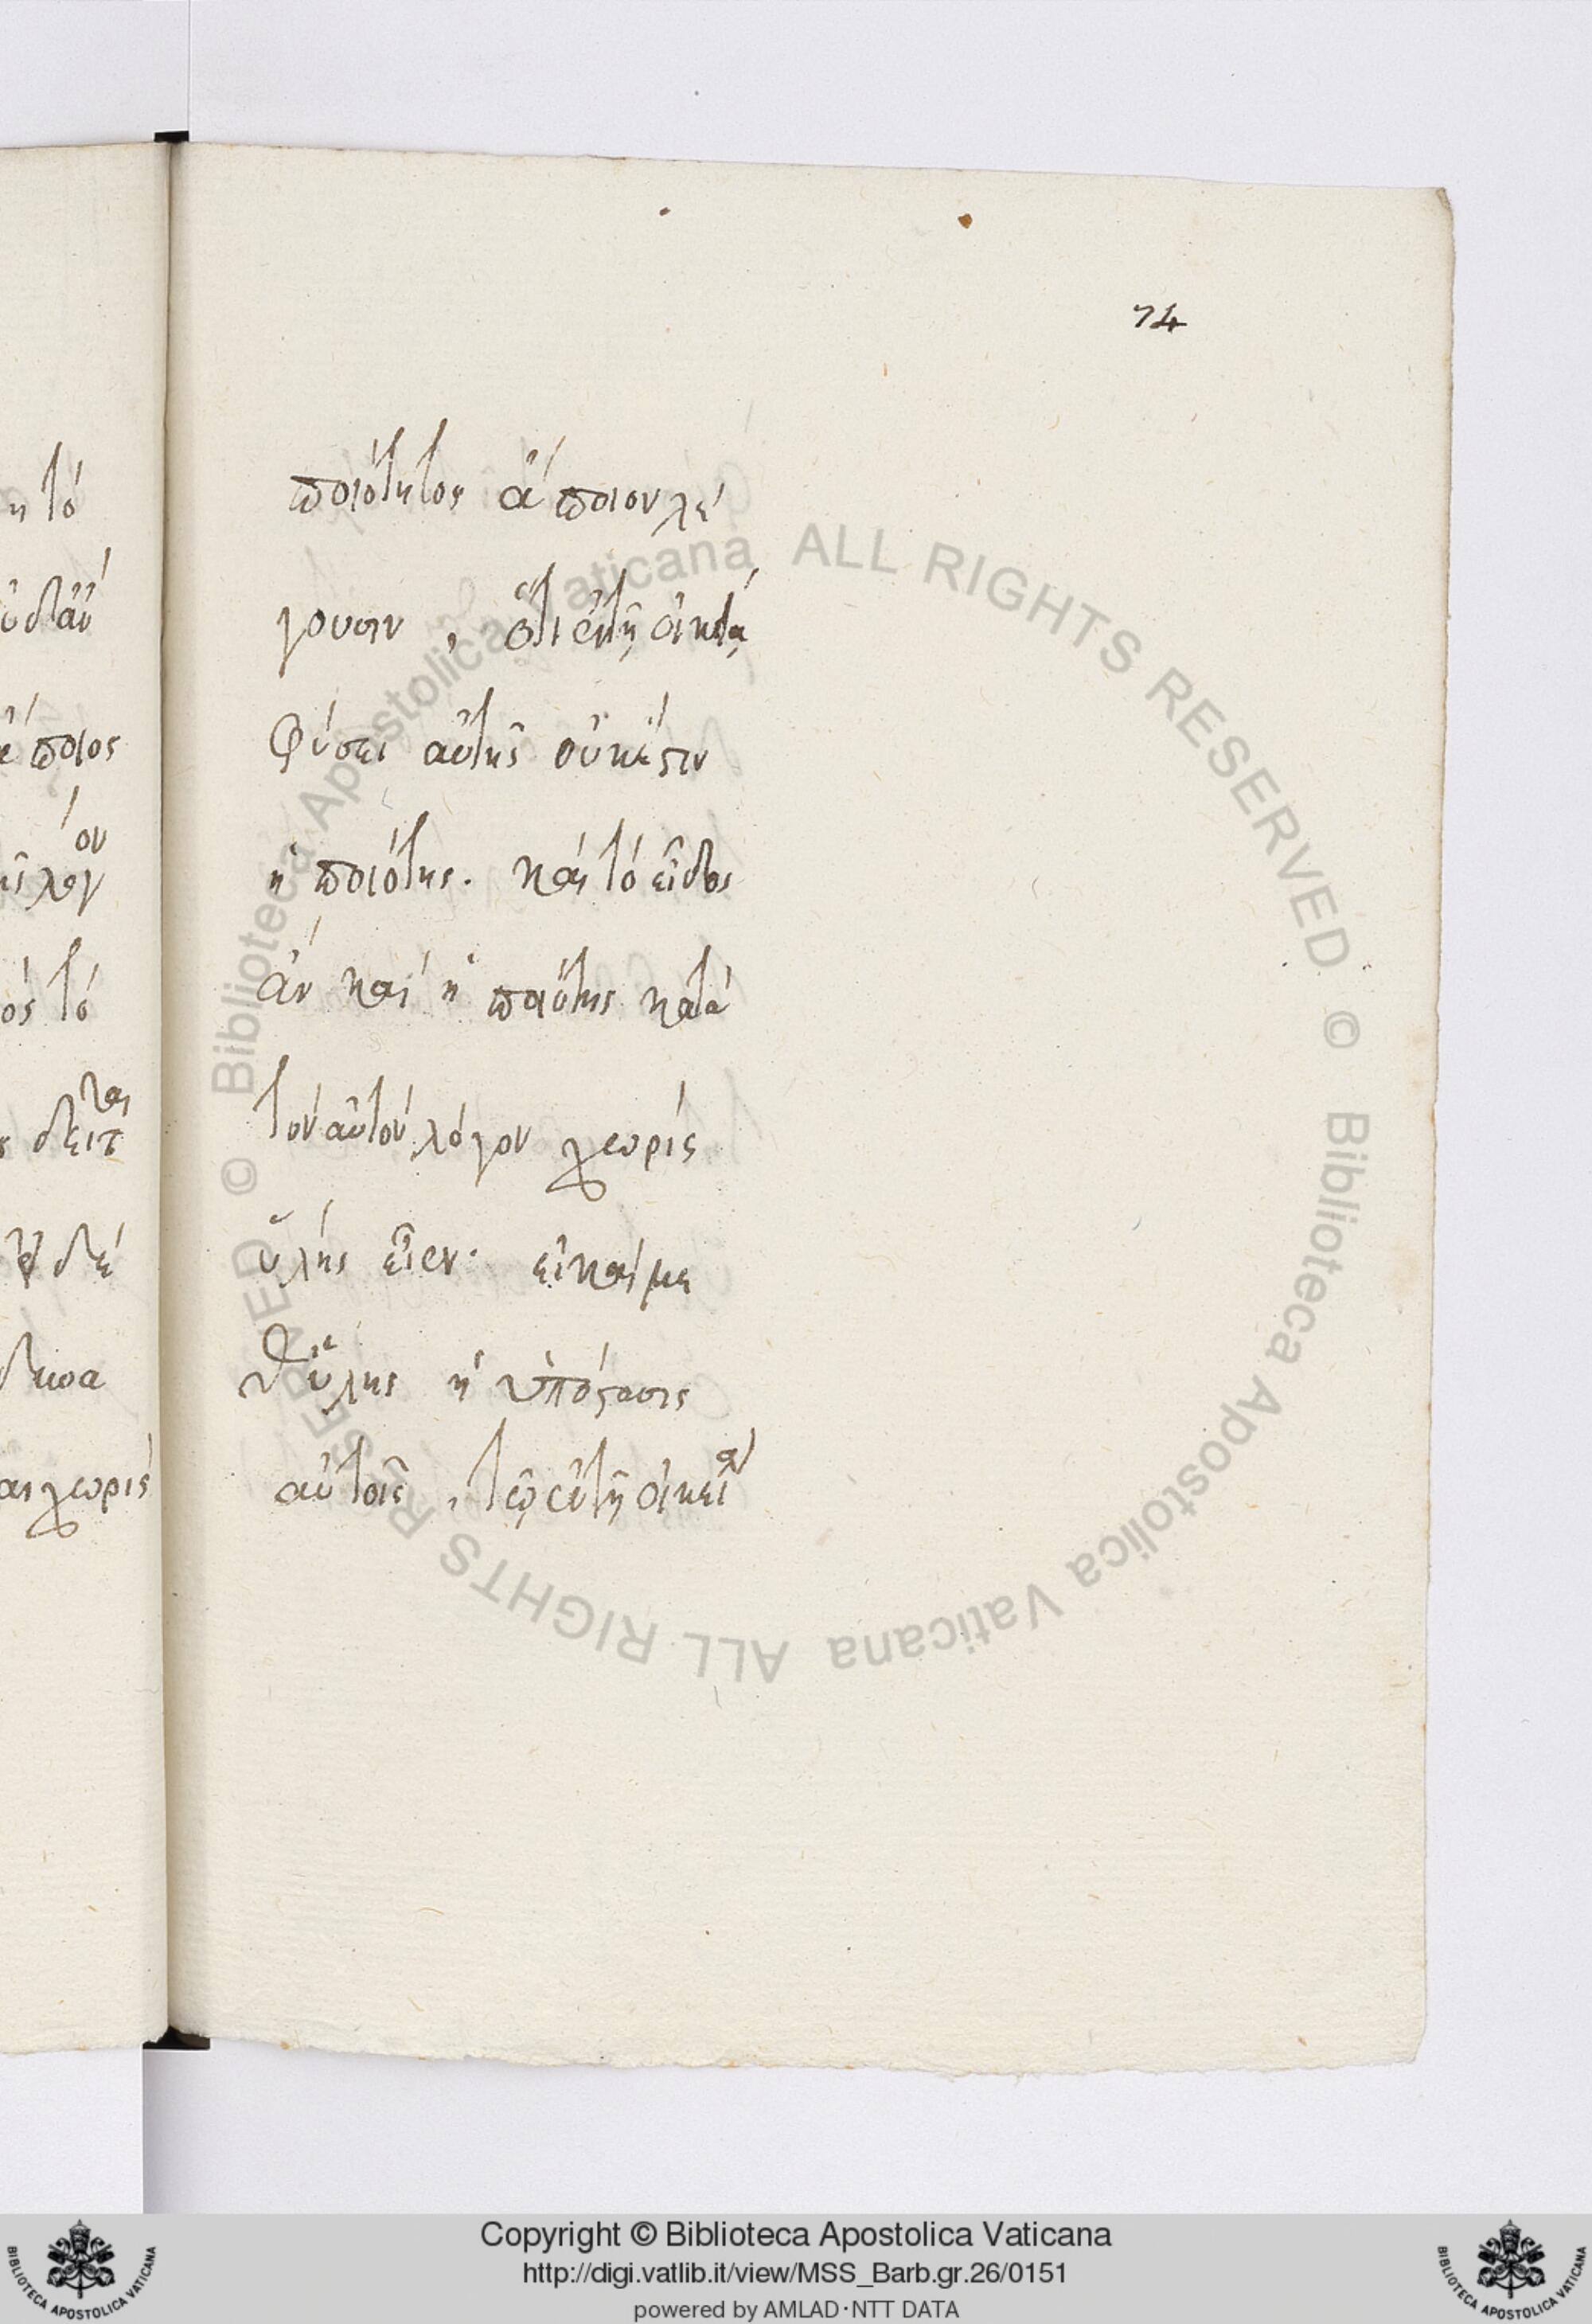 74
ποιότητος ἄποιον λέ
γουσιν, ὅτι ἐν τῇ οἰκείᾳ
φύσει αὐτῆς οὐκ ἔστιν
ἡ ποιότης. καὶ τὸ εἶδος
ἂν καὶ ἡ ποιότης κατὰ
τὸν αὐτὸν λόγον χωρὶς
ὕλης εἶεν. εἰ καὶ με
θ' ὕλης ἡ ὑπόστασις
αὐτοῖς, τῷ ἐν τῇ οἰκείᾳ
η τό
ἄποιος
ός τό
δέ
αι χωρίς
ALL RIGHTS RESERVED © Biblioteca Apostolica Vaticana ALL RIGHTS RESERVED © Biblioteca Apostolica Vaticana
Copyright © Biblioteca Apostolica Vaticana
http://digi.vatlib.it/view/MSS_Barb.gr.26/0151
powered by AMLAD·NTT DATA
BIBLIOTECA APOSTOLICA VATICANA
BIBLIOTECA APOSTOLICA VATICANA